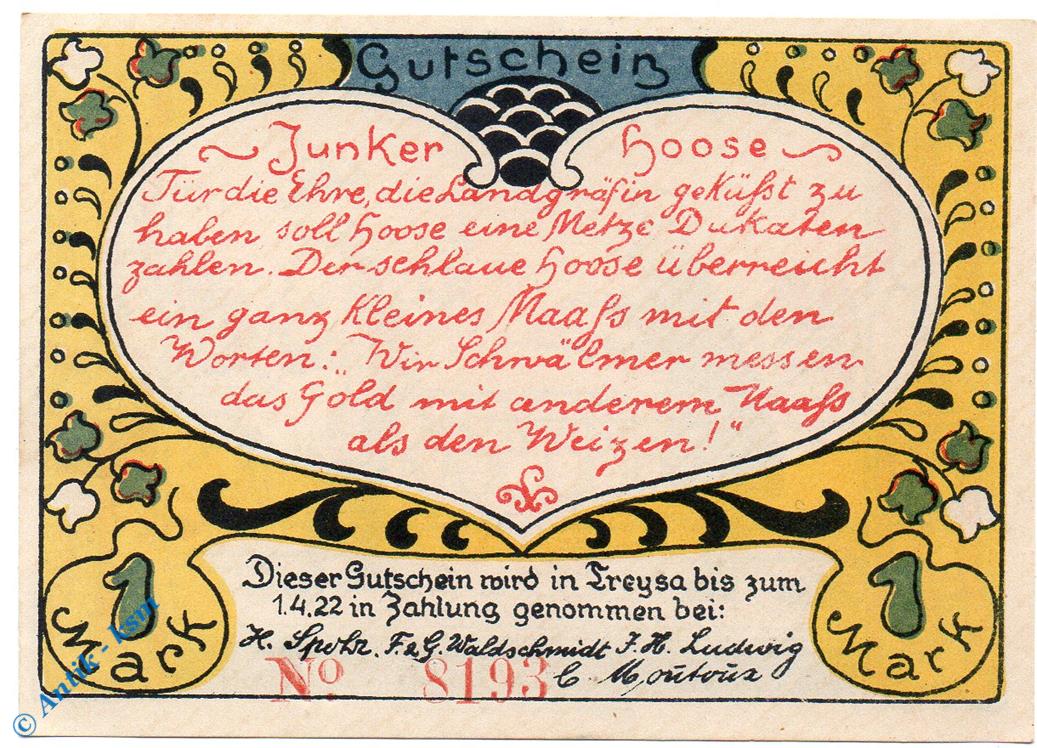 Gutschein
~ Junker Hoose ~
Für die Ehre, die Landgräfin geküßt zu
haben, soll Hoose eine Metze Dukaten
zahlen. Der schlaue Hoose überreicht
ein ganz kleines Maaß mit den
Worten: „Wir Schwälmer messen
das Gold mit anderem Maaß
als den Weizen!“
Dieser Gutschein wird in Treysa bis zum
1.4.22 in Zahlung genommen bei:
H. Spohr. F. & G. Waldschmidt J. H. Ludwig
No 8193 C Moutoux
1 Mark
1 Mark
© Antik - ksm